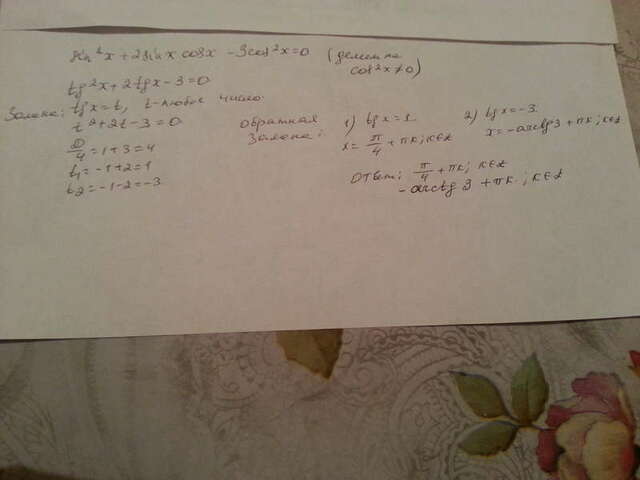 sin²x + 2sinx cosx - 3cos²x = 0 (делим на cos²x ≠ 0)
tg²x + 2tgx - 3 = 0
Замена: tgx = t, t - любое число.
t² + 2t - 3 = 0
D/4 = 1 + 3 = 4
t₁ = -1 + 2 = 1
t₂ = -1 - 2 = -3
обратная замена:
1) tgx = 1
x = π/4 + πk; k∈Z
2) tgx = -3
x = -arctg3 + πk; k∈Z
Ответ: π/4 + πk; k∈Z
-arctg 3 + πk; k∈Z